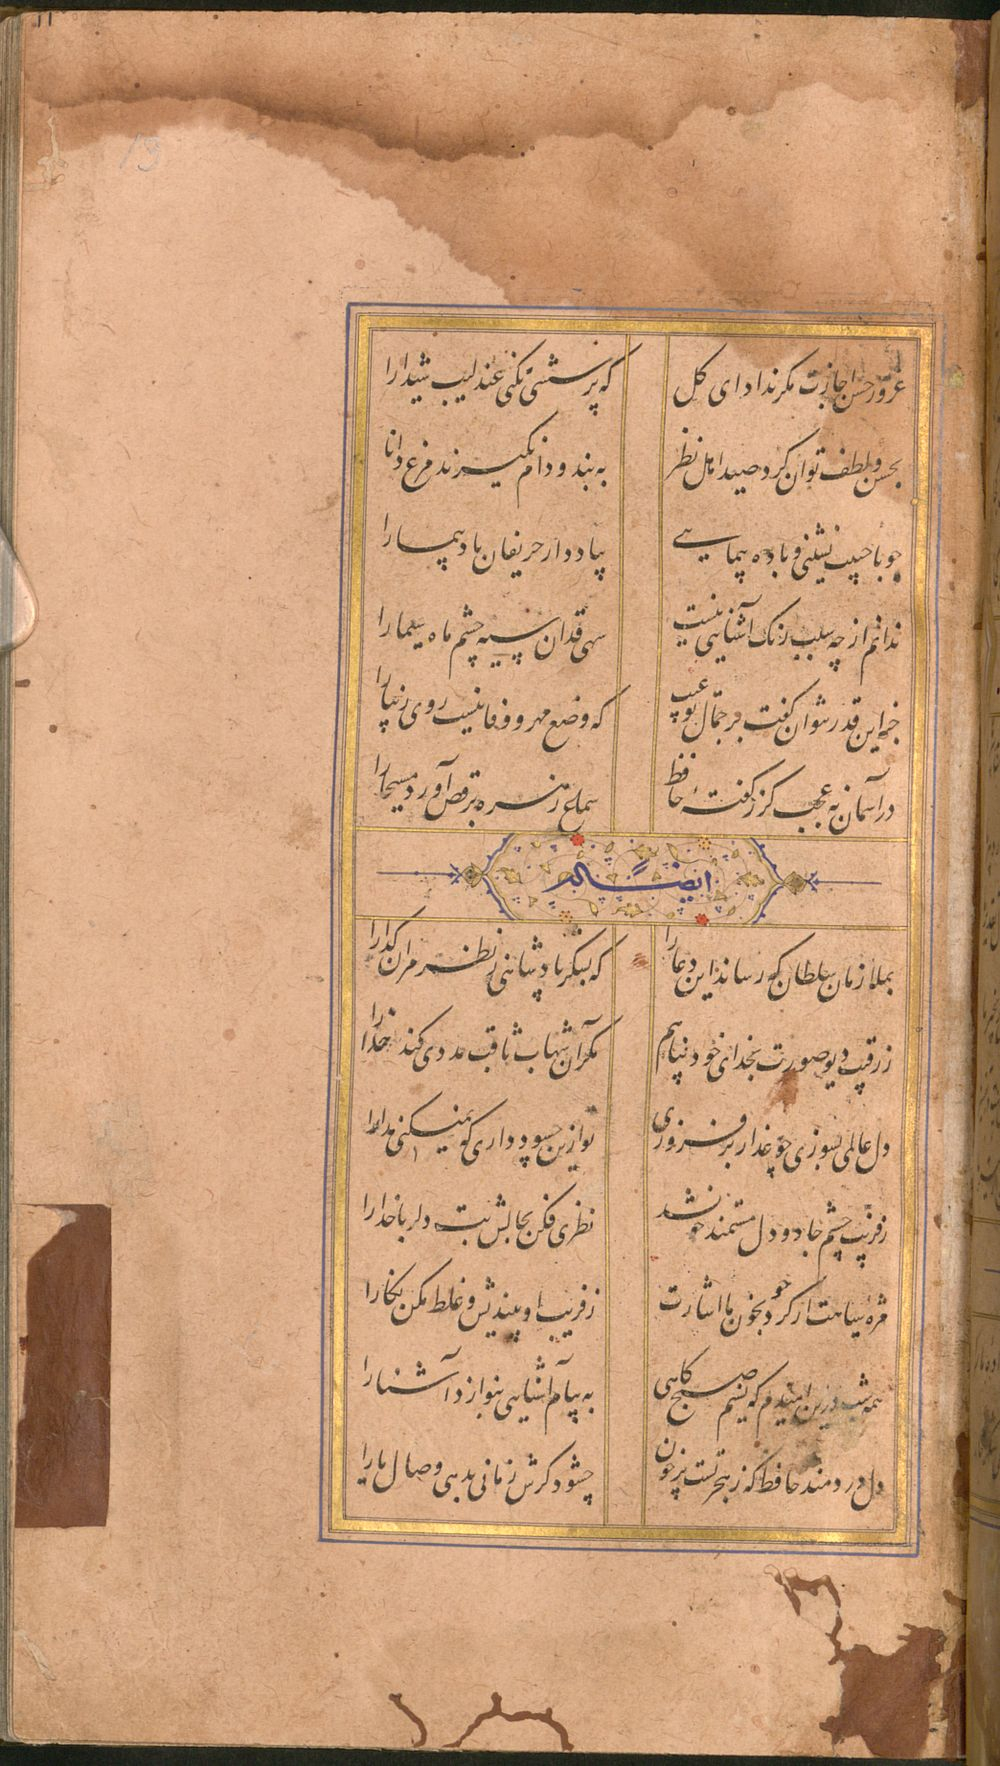 11
13
غرور حسن اجازت مکر نداد ای کل
که پرسشی نکنی عندلیب شیدا را
بحسن و لطف توان کرد صید اهل نظر
به بند و دام نکیرند مرغ دانا
چو با حبیب نشینی و باده پیمایی
بیاد دار حریفان باد پیما را
ندانم از چه سبب رنک آشنایی نیست
سهی قدان سیه چشم ماه سیما را
جز این قدر نتوان کفت بر جمال تو عیب
که وضع مهر و وفا نیست روی زیبا را
در آسمان نه عجب کر ز کفتهٔ حافظ
سماع زهره برقص آورد مسیحا را
ایضاً له
بملازمان سلطان که رساند این دعا را
که بشکر پادشاهی ز نظر مران کدا را
ز رقیب دیو صورت بخدای خود پناهم
مکر آن شهاب ثاقب مددی کند خدا را
دل عالمی بسوزی چو عذار بر فروزی
تو ازین چه سود داری که نمیکنی مدارا
ز فریب چشم جادو دل مستمند خون شد
نظری فکن بحالش بت دلربا خدا را
مژهٔ سیاهت ار کرد بخون ما اشارت
ز فریب او بیندیش و غلط مکن نکارا
همه شب درین امیدم که نسیم صبح کاهی
به پیام آشنایی بنوازد آشنا را
دل دردمند حافظ که ز هجر تست پر خون
چه شود کرش زمانی بدهی وصال یارا